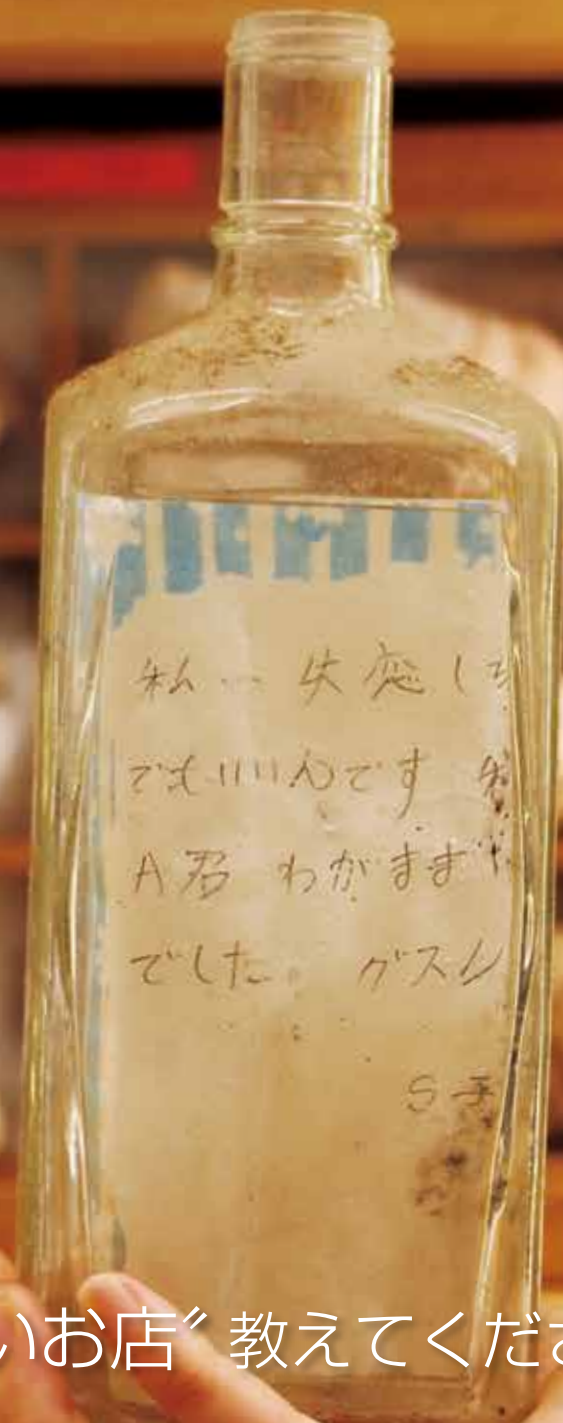 私… 失恋しち
でもいいんです
A君 わがまま
でした。 グスん
S子
いお店〟教えてくださ